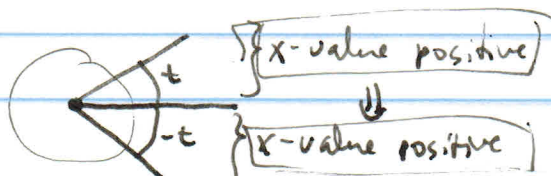 x-value positive
t
⇓
-t
x-value positive